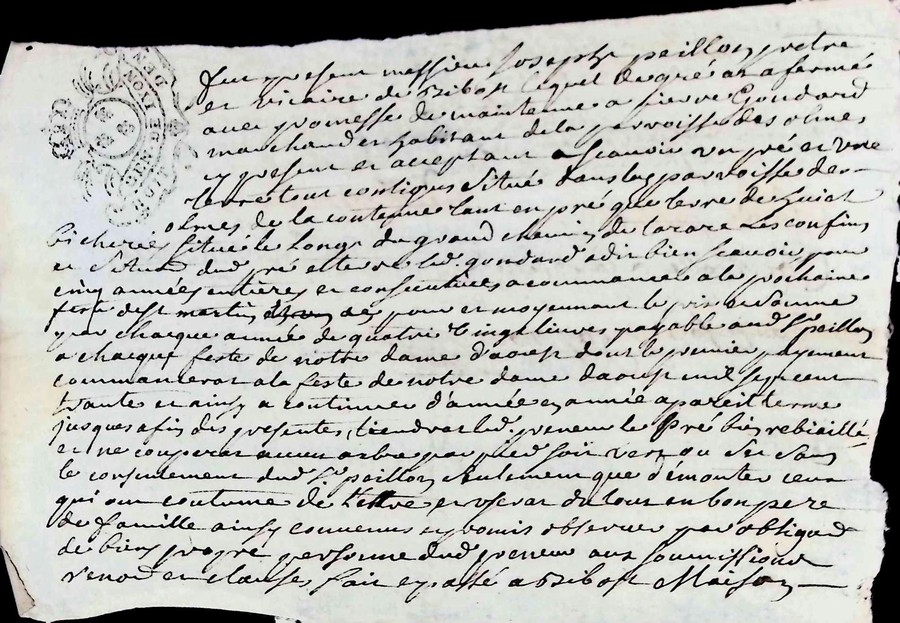 Fut present messire Joseph paillon pretre
et vicaire de Ribost lequel de gré at afermé
avec promesse de maintenue a pierre Gondard
marchand et habitant de la parroisse des olmes
cy present et acceptant a scavoir un pré et une
terre tout contigus situé dans lad parroisse des
olmes de la contenue tant en pré que terre de huict
bicherées situé le long du grand chemin de tarare les confins
et situa dud pré et terre led. gondard a dit bien scavoir pour
cinq années entieres et consecutives a commancer a la prochaine
feste de st martin pour et moyennant le prix et somme
par chaque année de quatre vingt livres payable aud sr paillon
a chaque feste de notre dame d'aoust dont le premier payement
commancerat a la feste de notre dame daoust mil sept cent
trante et ainsy a continuer d'année en année a pareil terme
jusques a fin des presentes, tiendrat led. preneur le pré bien rebiaillé
et ne couperat aucun arbre par pied soit vert ou sec sans
le consentement dud sr paillon seulement que d'émonter ceux
qui ont coutume de l'ettre et userat du tout en bon pere
de famille ainsy convenus et promis observer par obligaõ
de biens propre personne dud preneur aux soumissions
renoõ et clauses, fait et passé a Ribost Maison